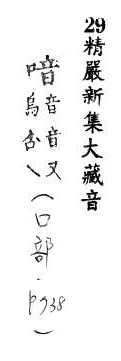 29精嚴新集大藏音
喑音音又烏含丶(口部.p938)